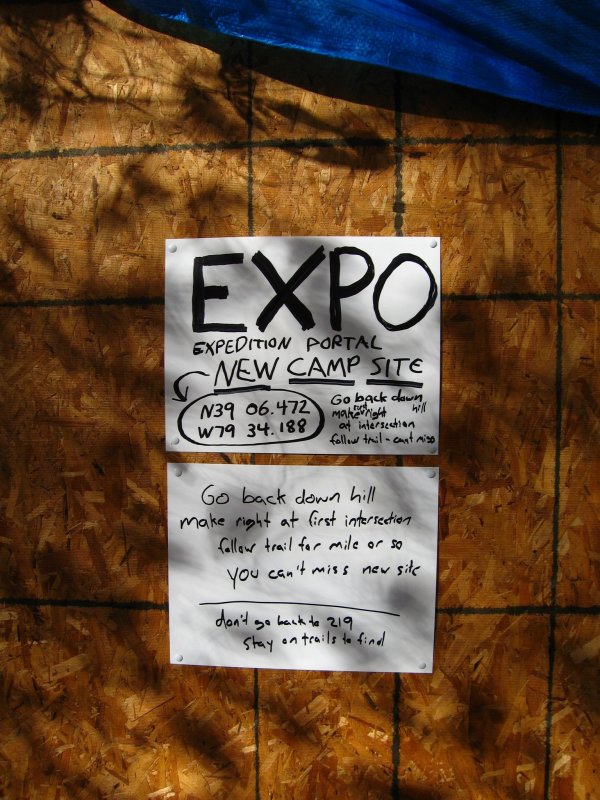 EXPO
EXPEDITION PORTAL
NEW CAMP SITE
N39 06.472
W79 34.188
Go back down hill
make first right
at intersection
follow trail - cant miss
Go back down hill
make right at first intersection
follow trail for mile or so
you can't miss new site
don't go back to 219
stay on trails to find